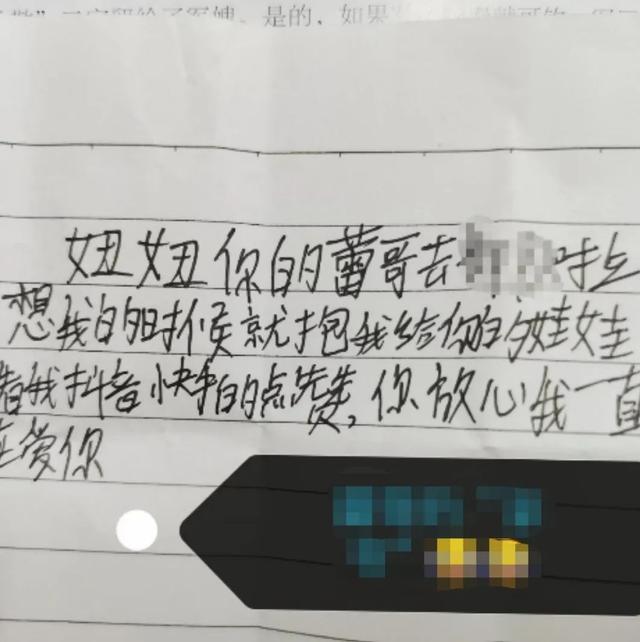 二字留给了军嫂。是的，如果
妞妞你的蕾哥去
想我的时候就抱我给你的娃娃
看我抖音快手的点赞，你放心我一直
在爱你